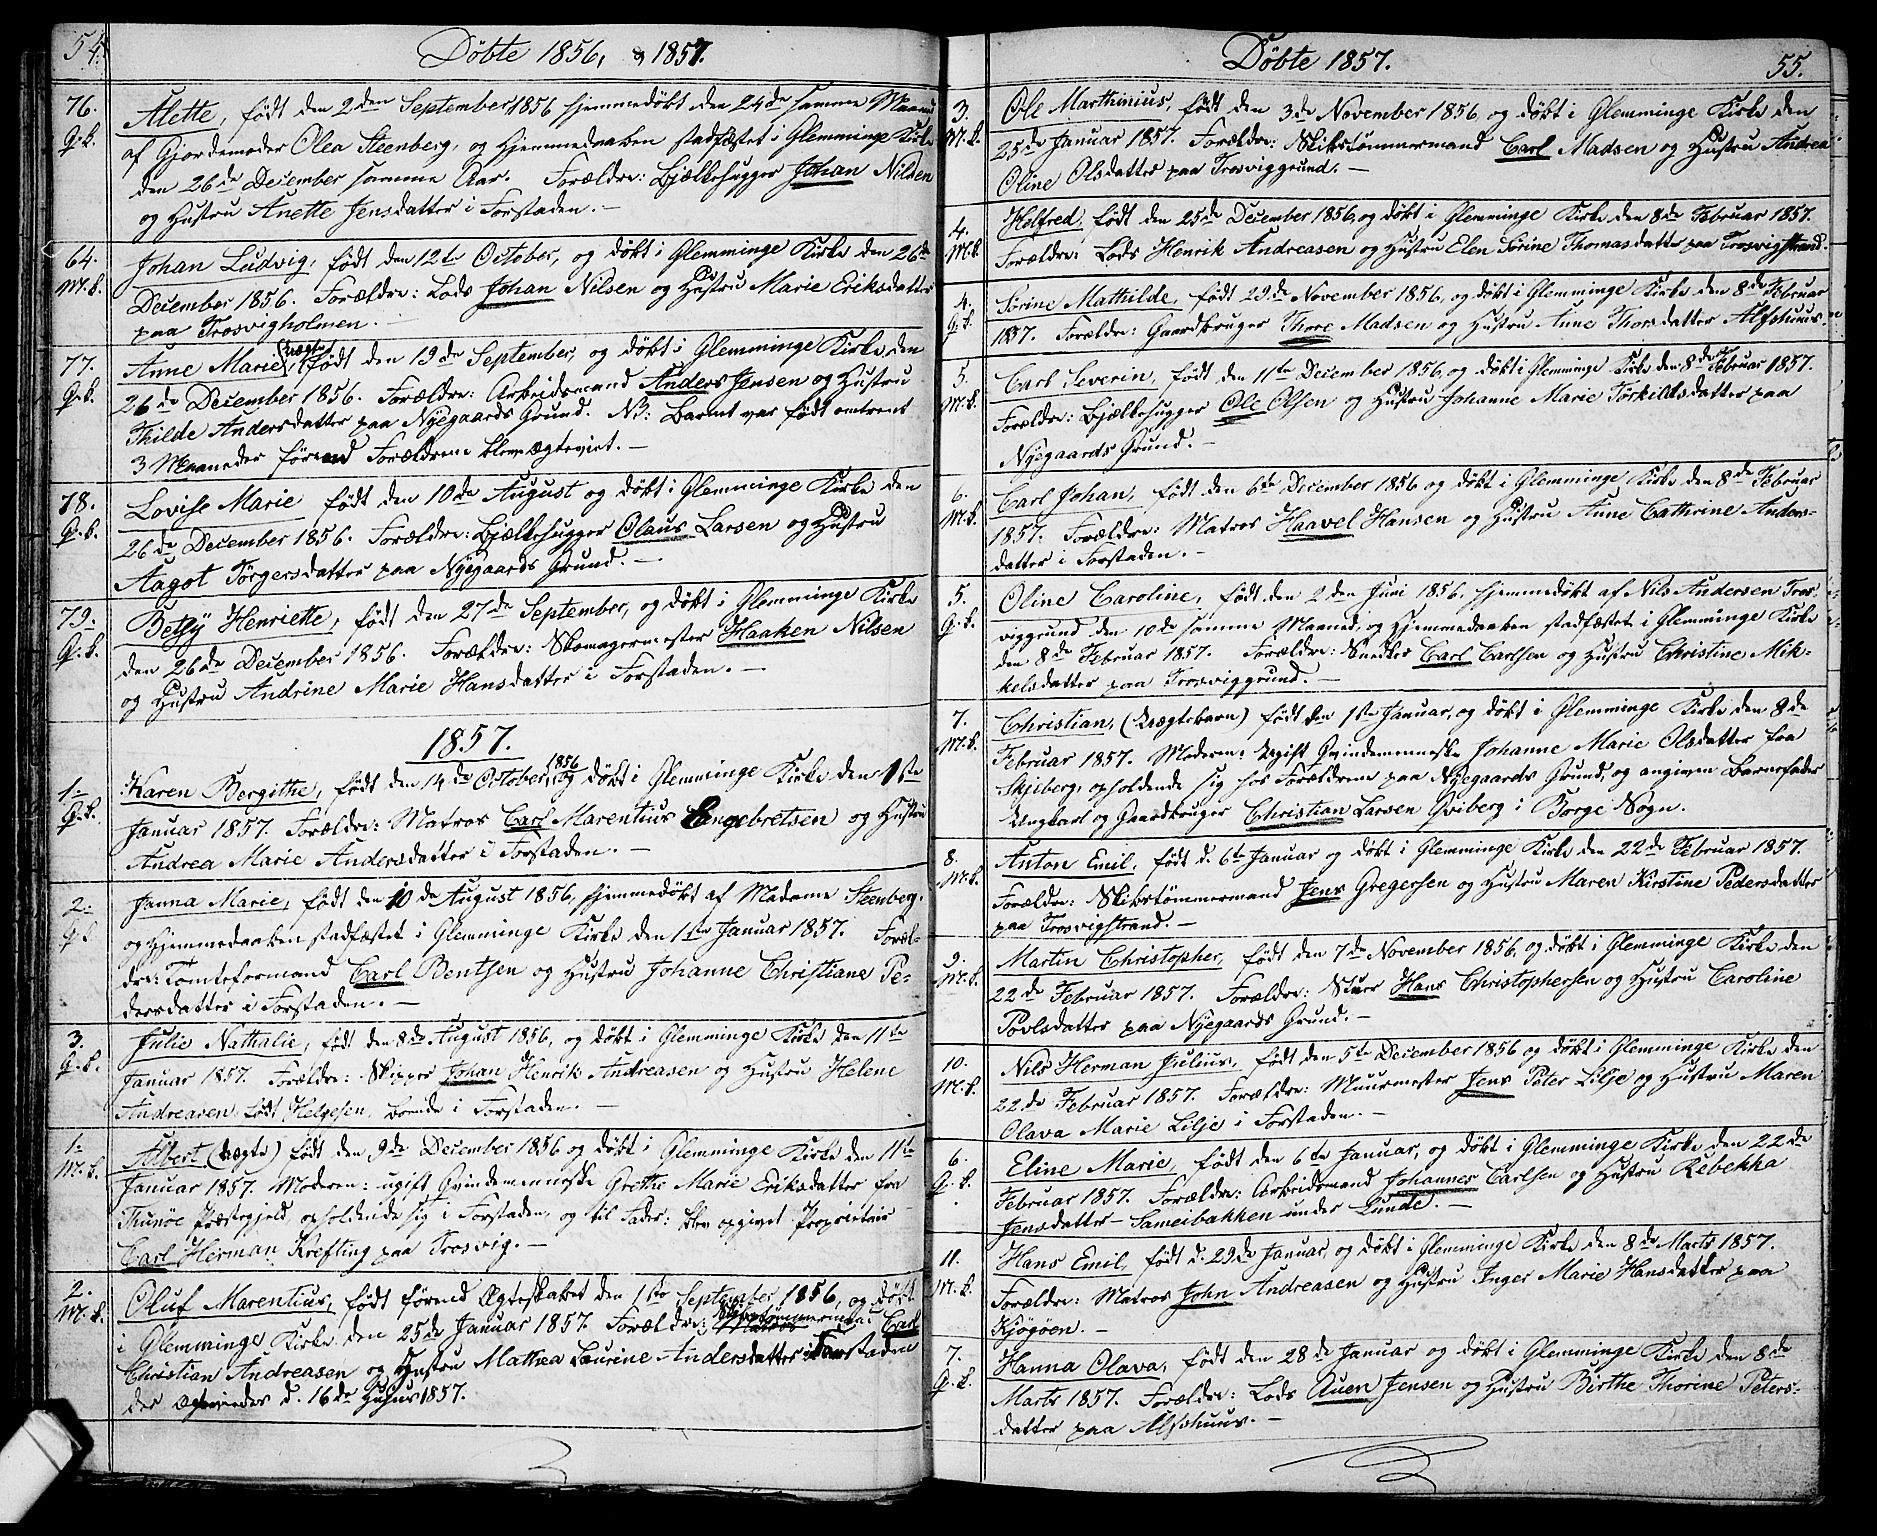 54.
Döbte 1856, & 1857.
76.
Q.k.
Alette, født den 2den September 1856 hjemmedøbt den 24de samme Maaned
af Gjordemoder Olea Steenberg, og Hjemmedaaben stadfæstet i Glemminge Kirke
den 26de December samme Aar. Forældre: Bjælkehugger Johan Nilsen
og Hustru Anette Jensdatter i Forstaden. —
64.
M.k.
Johan Ludvig, født den 12te October, og døbt i Glemminge Kirke den 26de
December 1856. Forældre: Lods Johan Nilsen og Hustru Marie Eriksdatter
paa Trosvigholmen. —
77.
Q.k.
Anne Marie (uægte) født den 19de September, og døbt i Glemminge Kirke den
26de December 1856. Forældre: Arbeidsmand Anders Jensen og Hustru
Thilde Andersdatter paa Nyegaards Grund. NB: Barnet var født omtrent
3 Maaneder førend Forældrene blev Ægteviet. —
78.
Q.k.
Lovise Marie født den 10de August og døbt i Glemminge Kirke den
26de December 1856. Forældre: Bjælkehugger Olaus Larsen og Hustru
Aagot Törgersdatter paa Nyegaards Grund. —
79.
Q.k.
Betsy Henriette, født den 27de September, og døbt i Glemminge Kirke
den 26de December 1856. Forældre: Skomagermester Haaken Nilsen
og Hustru Andrine Marie Hansdatter i Forstaden. —
1857.
1.
Q.k.
Karen Bergithe, født den 14de October, 1856 og døbt i Glemminge Kirke den 1ste
Januar 1857. Forældre: Matros Carl Marentius Engebretsen og Hustru
Andrea Marie Andersdatter i Forstaden. —
2.
Q.k.
Janna Marie, født den 10de August 1856, hjemmedøbt af Madame Steenberg,
og Hjemmedaaben stadfæstet i Glemminge Kirke den 1ste Januar 1857. Foræl-
dre: Tomteformand Carl Bentsen og Hustru Johanne Christiane Pe-
dersdatter i Forstaden. —
3.
Q.k.
Julie Nathalie, født den 8de August 1856, og døbt i Glemminge Kirke den 11te
Januar 1857. Forældre: Skipper Johan Henrik Andreasen og Hustru Helene
Andreasen født Helgesen, boende i Forstaden. —
1.
M.k.
Albert (uægte) født den 9de December 1856 og døbt i Glemminge Kirke den 11te
Januar 1857. Moderen: ugift Qvindemenneske Grethe Marie Eriksdatter fra
Thunöe Præstegjeld, opholdende sig i Forstaden, og til Fader: blev opgivet Proprietair
Carl Herman Krefting paa Trosvig. —
2.
M.k.
Oluf Marentius, født førend Ægteskabet den 1ste September 1856, og døbt
i Glemminge Kirke den 25de Januar 1857. Forældre: Skibstømmermand Carl
Christian Andreasen og Hustru Mathea Laurine Andersdatter i Forstaden
der Ægteviedes d. 16de 1857.
Döbte 1857.
55.
3.
M.k.
Ole Marthinius, født den 3de November 1856, og døbt i Glemminge Kirke den
25de Januar 1857. Forældre: Skibstømmermand Carl Madsen og Hustru Andrea
Oline Olsdatter paa Trosviggrund. —
4.
M.k.
Holfred, født den 25de December 1856, og døbt i Glemminge Kirke den 8de Februar 1857.
Forældre: Lods Henrik Andreasen og Hustru Elen Sörine Thomasdatter paa Trosvigstrand.
4.
Q.k.
Sörine Mathilde, født 29de November 1856, og døbt i Glemminge Kirke den 8de Februar
1857. Forældre: Gaardbruger Thore Madsen og Hustru Anne Thorsdatter Alfshuus.
5.
M.k.
Carl Severin, født den 11te December 1856, og døbt i Glemminge Kirke den 8de Februar 1857.
Forældre: Bjælkehugger Ole Olsen og Hustru Johanne Marie Torkildsdatter paa
Nyegaards Grund. —
6.
M.k.
Carl Johan, født den 6te December 1856 og døbt i Glemminge Kirke den 8de Februar
1857. Forældre: Matros Haavel Hansen og Hustru Anne Cathrine Anders-
datter i Forstaden. —
5.
Q.k.
Oline Caroline, født den 2den Juni 1856. hjemmedøbt af Nils Andersen Tros-
viggrund den 10de samme Maaned, og Hjemmedaaben stadfæstet i Glemminge Kirke
den 8de Februar 1857. Forældre: Snedker Carl Carlsen og Hustru Christine Mik-
kelsdatter paa Trosviggrund. —
7.
M.k.
Christian, (Uægtebarn) født den 1ste Januar, og døbt i Glemminge Kirke den 8de
Februar 1857. Moderen: Ugift Qvindemenneske Johanne Marie Olsdatter fra
Skjeberg, opholdende sig hos Forældrene paa Nyegaards Grund, og angiven Barnefader
Ungkarl og Gaardbruger Christian Larsen Qviberg i Borge Sogn.
8.
M.k.
Anton Emil, født d. 6te Januar og døbt i Glemminge Kirke den 22de Februar 1857.
Forældre: Skibstømmermand Jens Gregersen og Hustru Maren Kirstine Pedersdatter
paa Trosvigstrand. —
9.
M.k.
Martin Christopher, født den 7de November 1856, og døbt i Glemminge Kirke den
22de Februar 1857. Forældre: Stuer Hans Christophersen og Hustru Caroline
Povlsdatter paa Nyegaards Grund. —
10.
M.k.
Nils Herman Julius, født den 5te December 1856 og døbt i Glemminge Kirke den
22de Februar 1857. Forældre: Muurmester Jens Peter Lilje og Hustru Maren
Olava Marie Lilje i Forstaden. —
6.
Q.k.
Eline Marie, født den 6te Januar, og døbt i Glemminge Kirke den 22de
Februar 1857. Forældre: Arbeidsmand Johannes Carlsen og Hustru Rebekka
Jensdatter — Sameibakken under Lunde. —
11.
M.k.
Hans Emil, født d. 29de Januar, og døbt i Glemminge Kirke den 8de Marts 1857.
Forældre: Matros John Andreasen og Hustru Inger Marie Hansdatter paa
Kjögöen. —
7.
Q.k.
Hanna Olava, født den 28de Januar og døbt i Glemminge Kirke den 8de
Marts 1857. Forældre: Lods Auen Jensen og Hustru Birthe Thorine Peters-
datter paa Alfshuus. —